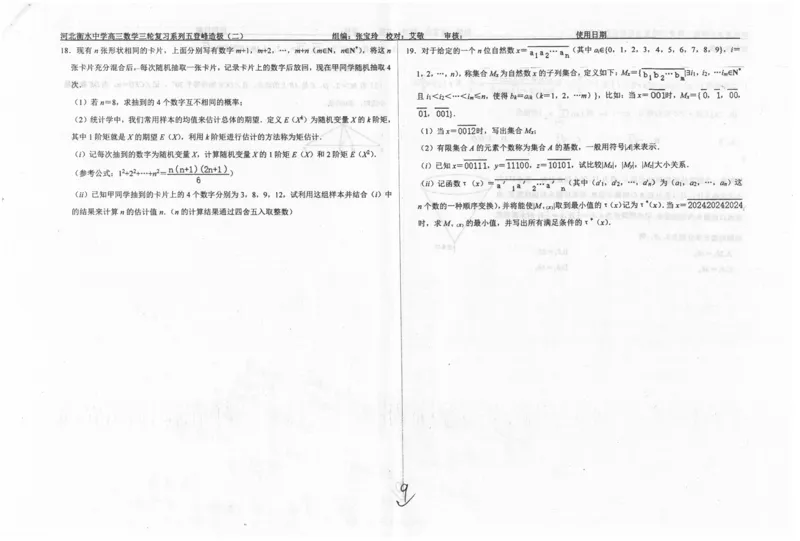 河北衡水中学高三数学三轮复习系列五登峰造极(二)
组编:张宝玲 校对:艾敬 审核:
使用日期
18.现有n张形状相同的卡片,上面分别写有数字m+1,m+2,…,m+n(m∈N,n∈N*),将这n
张卡片充分混合后,每次随机抽取一张卡片,记录卡片上的数字后放回,现在甲同学随机抽取4
次.
(1)若n=8,求抽到的4个数字互不相同的概率;
(2)统计学中,我们常用样本的均值来估计总体的期望.定义E(Xᵏ)为随机变量X的k阶矩,
其中1阶矩就是X的期望E(X),利用k阶矩进行估计的方法称为矩估计.
(i)记每次抽到的数字为随机变量X,计算随机变量X的1阶矩E(X)和2阶矩E(X²).
(参考公式:1²+2²+⋯+n²=n(n+1)(2n+1)/6)
(ii)已知甲同学抽到的卡片上的4个数字分别为3,8,9,12,试利用这组样本并结合(i)中
的结果来计算n的估计值n.(n的计算结果通过四舍五入取整数)
19.对于给定的一个n位自然数x=a₁a₂⋯aₙ(其中aᵢ∈{0,1,2,3,4,5,6,7,8,9},i=
1,2,…,n),称集合Mₓ为自然数x的子列集合,定义如下:Mₓ={b₁b₂⋯bₘ|∃i₁,i₂,…iₘ∈N*
且i₁<i₂<⋯<iₘ≤n,使得bₖ=aᵢₖ(k=1,2,…m)},比如:当x=001时,Mₓ={0,1,00,
01,001}.
(1)当x=0012时,写出集合Mₓ;
(2)有限集合A的元素个数称为集合A的基数,一般用符号|A|来表示.
(i)已知x=00111,y=11100,z=10101,试比较|Mₓ|,|My|,|Mz|大小关系.
(ii)记函数τ(x)=a′₁a′₂⋯a′ₙ(其中(a′₁,a′₂,…,a′ₙ)为(a₁,a₂,…,aₙ)这
n个数的一种顺序变换),并将能使|Mτ(x)|取到最小值的τ(x)记为τ*(x).当x=202420242024
时,求Mτ(x)的最小值,并写出所有满足条件的τ*(x).
9